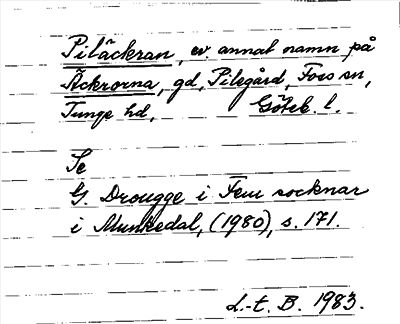 Piläckran, ev. annat namn på
Äckrorna, gd, Pilegård, Foss sn,
Tunge hd, Göteb. l.
Se
G. Drougge i Fem socknar
i Munkedal, (1980), s. 171.
L.-t. B. 1983.